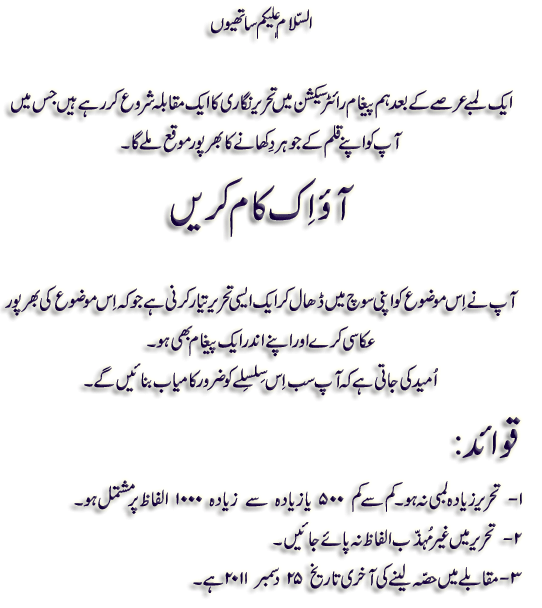 السّلام علیکم ساتھیوں
ایک لمبے عرصے کے بعد ہم پیغام رائٹر سیکشن میں تحریر نگاری کا ایک مقابلہ شروع کر رہے ہیں جس میں
آپ کو اپنے قلم کے جوہر دِکھانے کا بھرپور موقع ملے گا۔
آؤ اِک کام کریں
آپ نے اِس موضوع کو اپنی سوچ میں ڈھال کر ایک ایسی تحریر تیار کرنی ہے جو کہ اِس موضوع کی بھرپور
عکاسی کرے اور اپنے اندر ایک پیغام بھی ہو۔
اُمید کی جاتی ہے کہ آپ سب اِس سِلسِلے کو ضرور کامیاب بنائیں گے۔
قوائد:
۱- تحریر زیادہ لمبی نہ ہو۔ کم سے کم ۵۰۰ یا زیادہ سے زیادہ ۱۰۰۰ الفاظ پر مشتمل ہو۔
۲- تحریر میں غیر مُہذّب الفاظ نہ پائے جائیں۔
۳- مقابلے میں حصّہ لینے کی آخری تاریخ ۲۵ دسمبر ۲۰۱۱ ہے۔